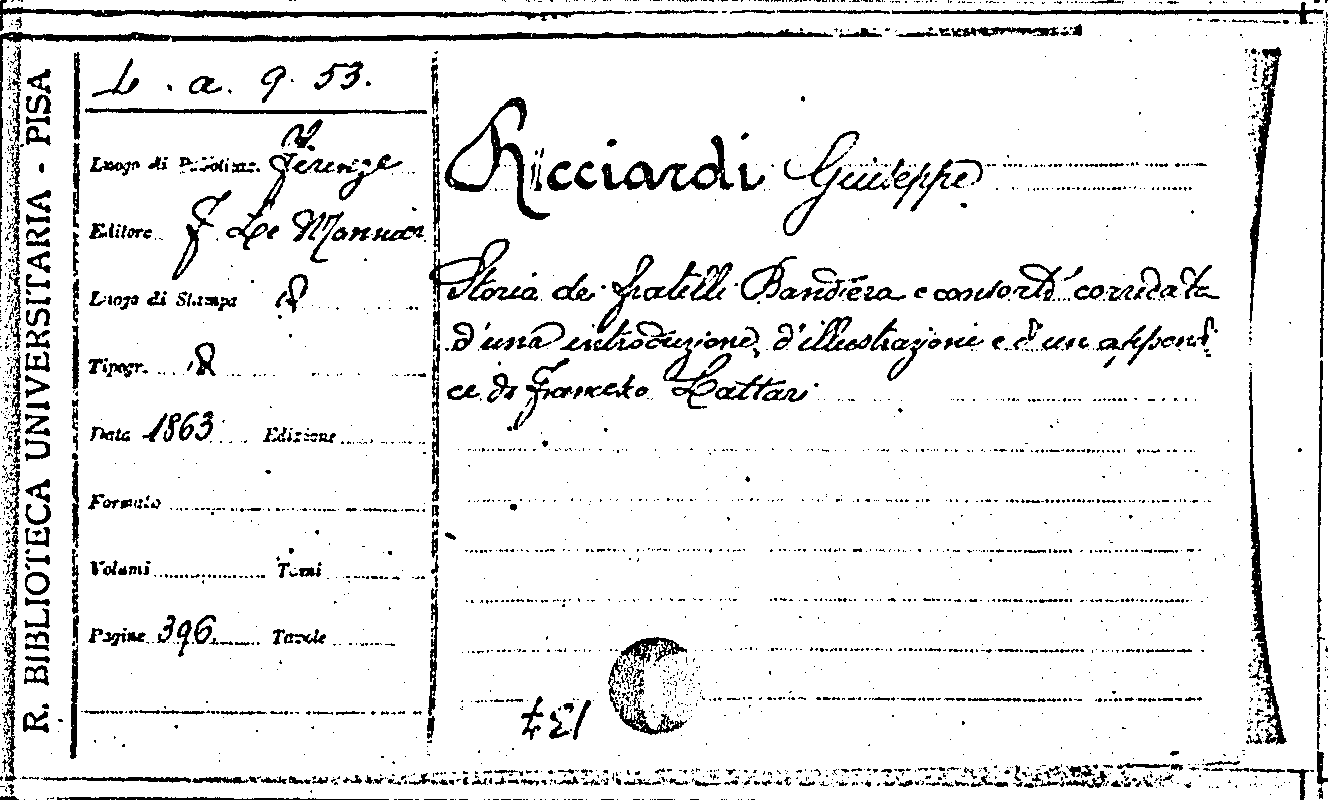 R. BIBLIOTECA UNIVERSITARIA - PISA
L. a. 9. 53.
Luogo di Pubblicaz. Firenze
Editore F Le Monnier
Luogo di Stampa
Tipogr.
Data 1863 Edizione
Formato
Volumi Tomi
Pagine 396. Tavole
Ricciardi Giuseppe
Storia dei fratelli Bandiera e consorti corredata
d'una introduzione, d'illustrazioni e d'un append
ce di Francesco Lattari
137